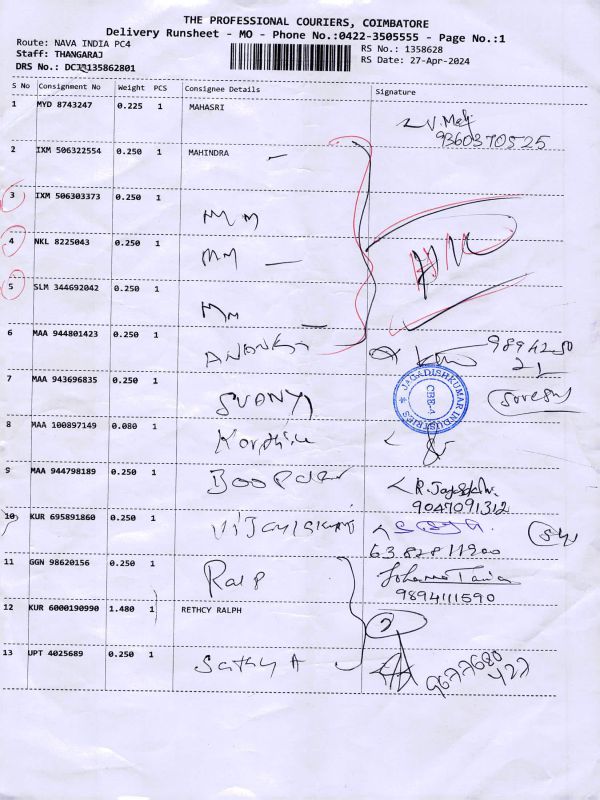 THE PROFESSIONAL COURIERS, COIMBATORE
Delivery Runsheet - MO - Phone No.:0422-3505555 - Page No.:1
Route: NAVA INDIA PC4
Staff: THANGARAJ
RS No.: 1358628
RS Date: 27-Apr-2024
S No Consignment No Weight PCS Consignee Details Signature
1 MYD 8743247 0.225 1 MAHASRI
9360370525
2 IXM 506322554 0.250 1 MAHINDRA
3 IXM 506303373 0.250 1 MM
4 NKL 8225043 0.250 1 MM
5 SLM 344692042 0.250 1 MM
6 MAA 944801423 0.250 1
7 MAA 943696835 0.250 1
JAGADISHKUMAR INDUSTRIES
CBE-4
8 MAA 100897149 0.080 1
9 MAA 944798189 0.250 1
9047091312
10 KUR 695891860 0.250 1
11 GGN 98620156 0.250 1
9894111590
12 KUR 6000190990 1.480 1 RETHCY RALPH
13 UPT 4025689 0.250 1 Sathy A
9677680
427